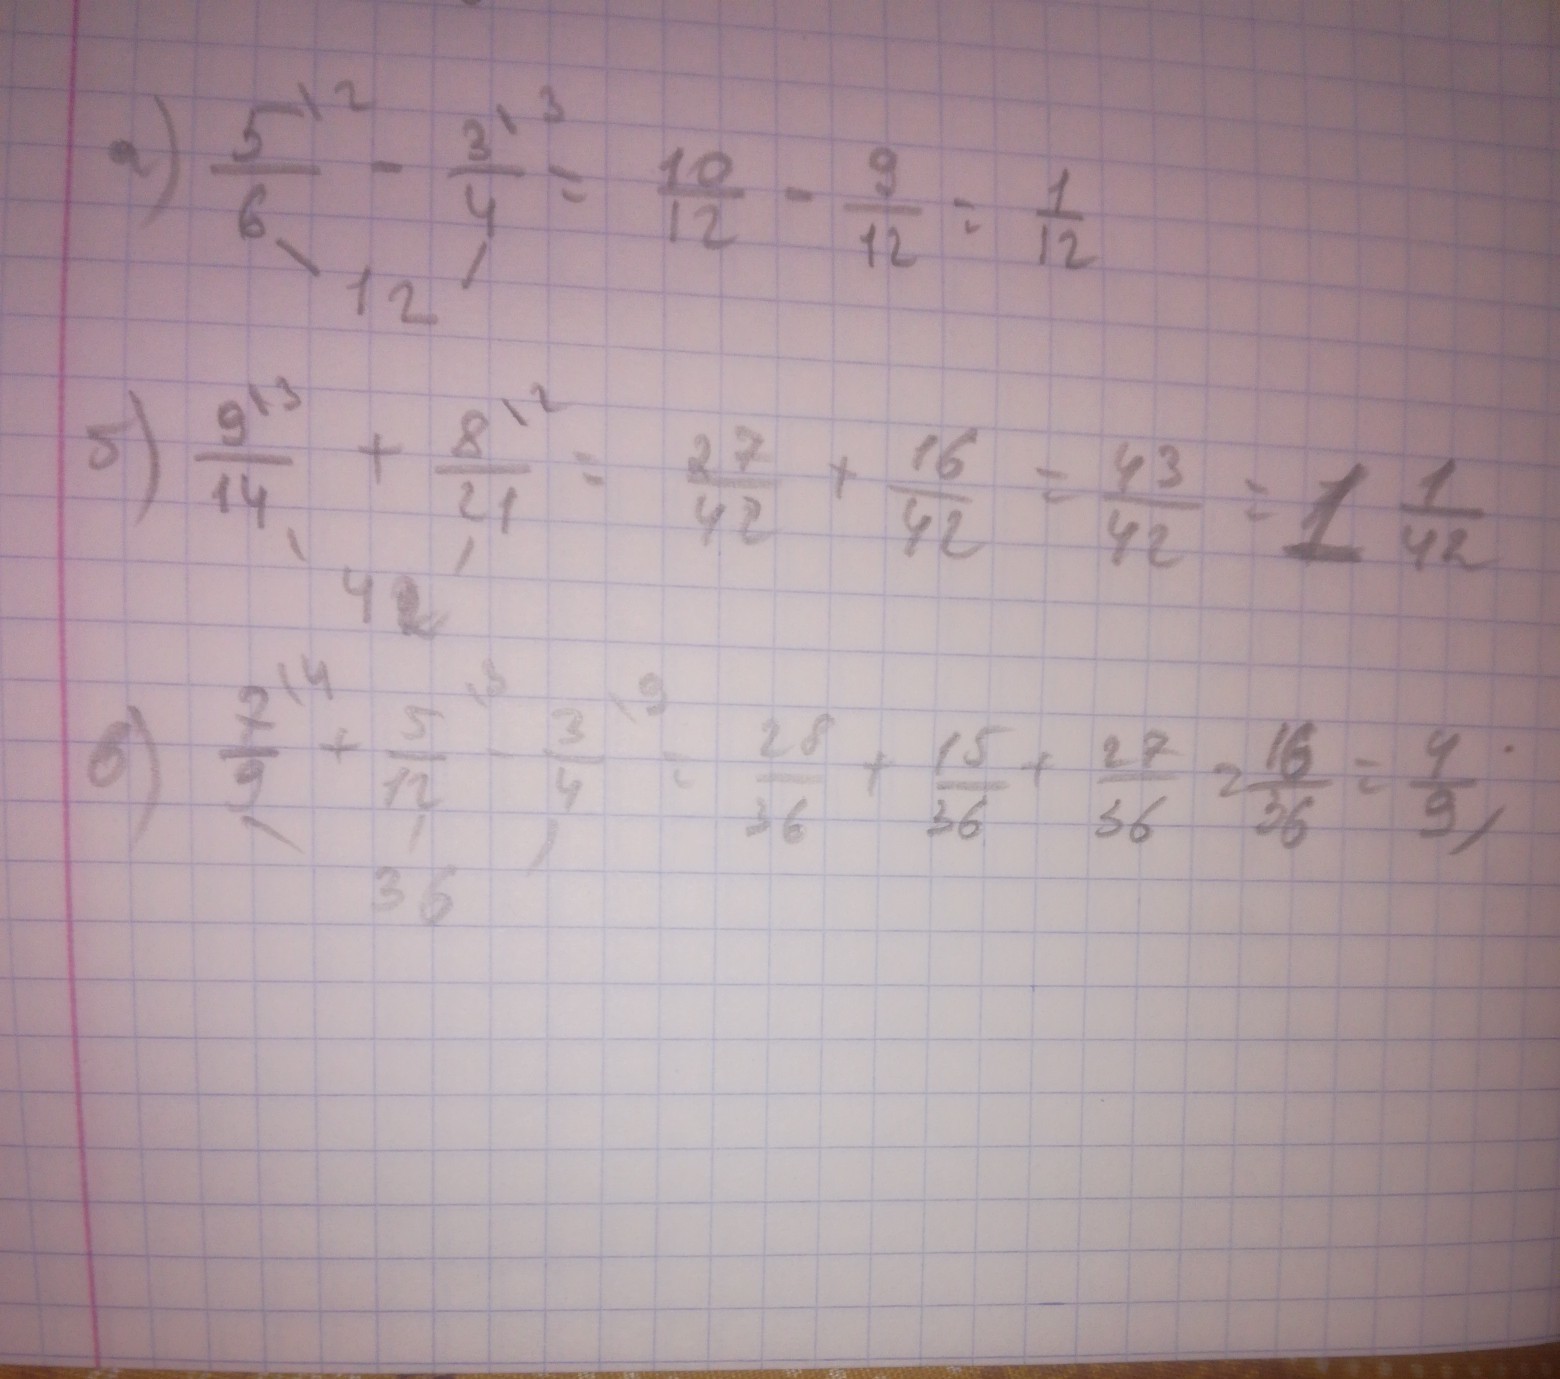 а) 5\2/6 - 3\3/4 = 10/12 - 9/12 = 1/12
12
б) 9\3/14 + 8\2/21 = 27/42 + 16/42 = 43/42 = 1 1/42
42
в) 7\4/9 + 5\3/12 - 3\9/4 = 28/36 + 15/36 + 27/36 = 16/36 = 4/9
36